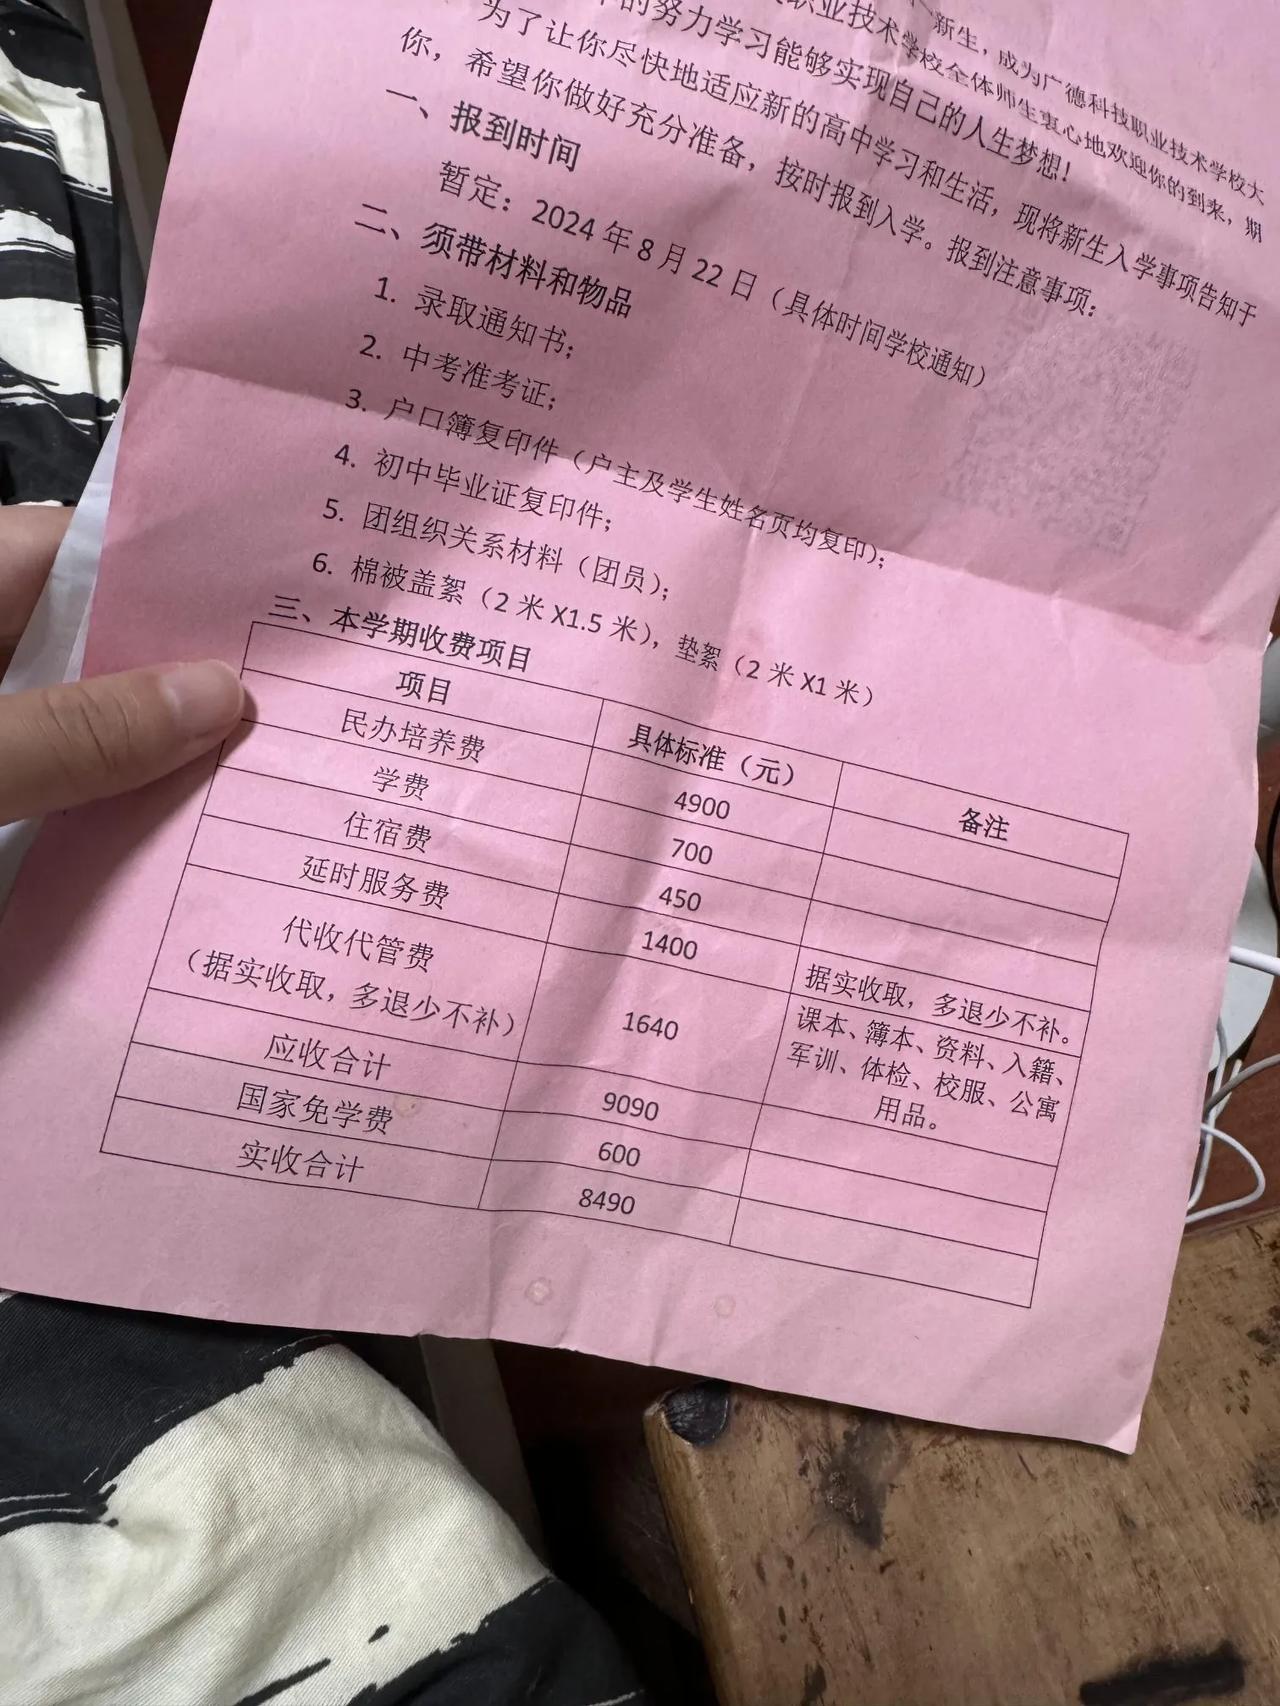 新生，成为广德科技职业技术学校大
职业技术学校全体师生衷心地欢迎你的到来，期
的努力学习能够实现自己的人生梦想！
为了让你尽快地适应新的高中学习和生活，现将新生入学事项告知于
你，希望你做好充分准备，按时报到入学。报到注意事项：
一、报到时间
暂定：2024年8月22日（具体时间学校通知）
二、须带材料和物品
1. 录取通知书；
2. 中考准考证；
3. 户口簿复印件（户主及学生姓名页均复印）；
4. 初中毕业证复印件；
5. 团组织关系材料（团员）；
6. 棉被盖絮（2米X1.5米），垫絮（2米X1米）
三、本学期收费项目
项目 具体标准（元） 备注
民办培养费 4900
学费 700
住宿费 450
延时服务费 1400 据实收取，多退少不补。
代收代管费
（据实收取，多退少不补） 1640 课本、簿本、资料、入籍、
军训、体检、校服、公寓
用品。
应收合计 9090
国家免学费 600
实收合计 8490